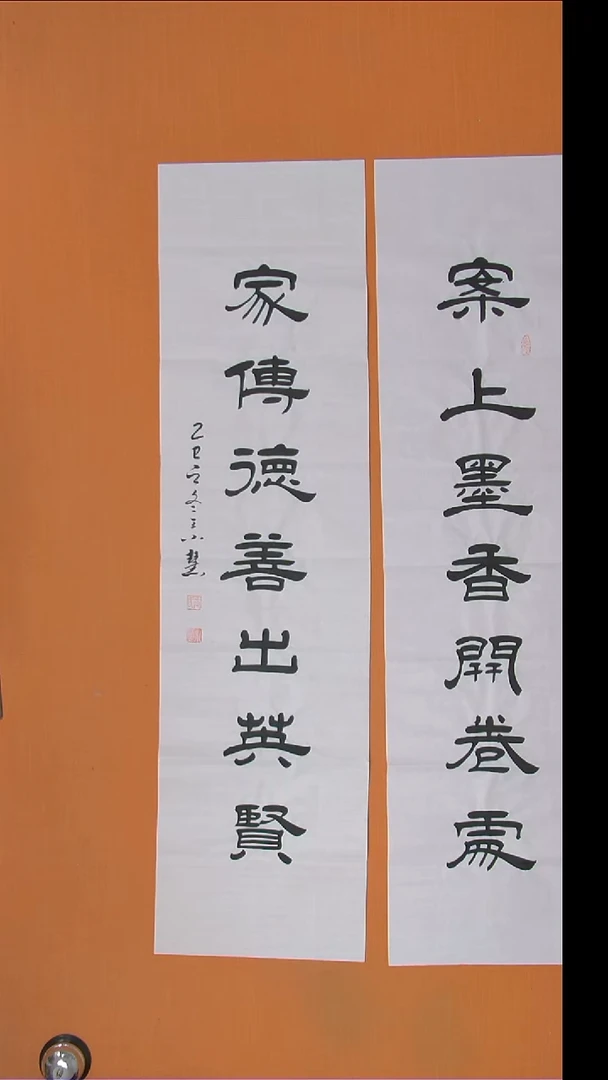 案上墨香開卷處
家傳德善出英賢
乙巳之冬王小慧